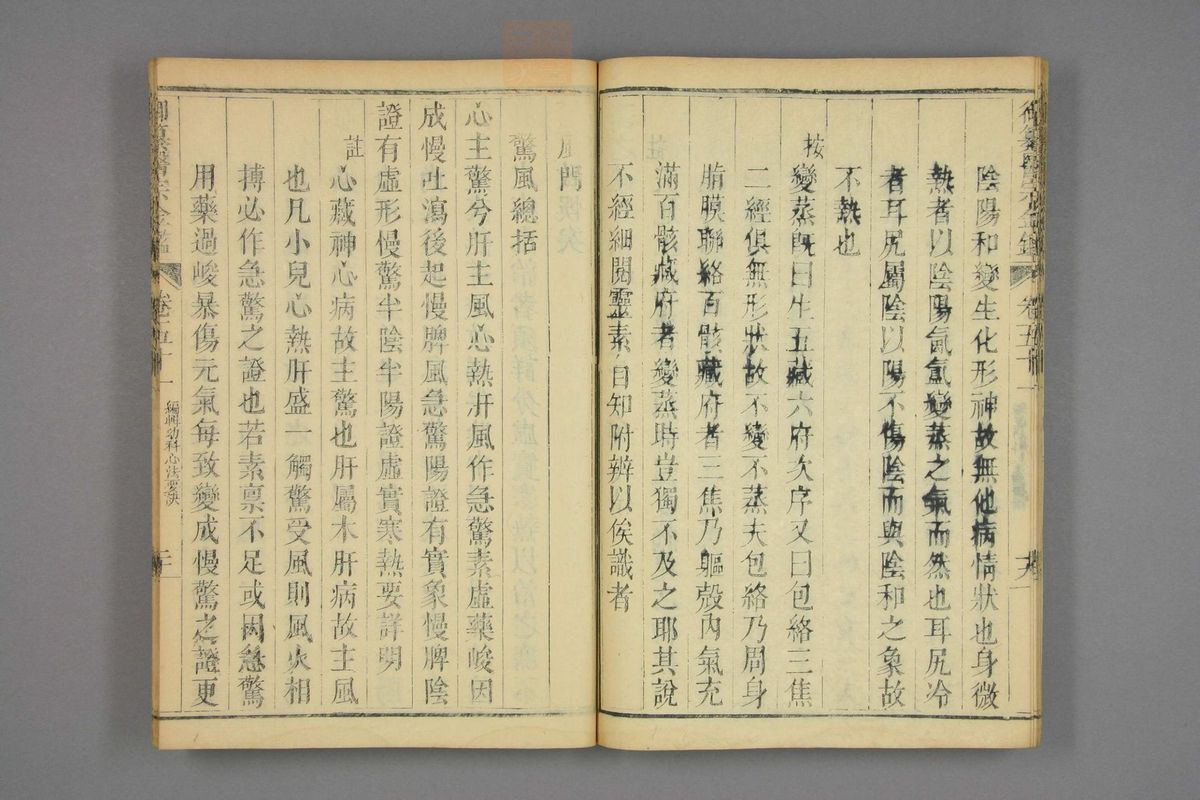 御纂醫宗金鑑 卷五十
陰陽和變生化形神故無他病情狀也身微
熱者以陰陽氤氳變蒸之氣而然也耳尻冷
者耳尻屬陰以陽不傷陰而與陰和之象故
不熱也
按
變蒸旣曰生五藏六府次序又曰包絡三焦
二經俱無形狀故不變不蒸夫包絡乃周身
脂膜聯絡百骸藏府者三焦乃軀殼內氣充
滿百骸藏府者變蒸時豈獨不及之耶其說
不經細閱靈素自知附辨以俟識者
門
驚風總括
心主驚兮肝主風心熱肝風作急驚素虛藥峻因
成慢吐瀉後起慢脾風急驚陽證有實象慢脾陰
證有虛形慢驚半陰半陽證虛實寒熱要詳明
註
心藏神心病故主驚也肝屬木肝病故主風
也凡小兒心熱肝盛一觸驚受風則風火相
搏必作急驚之證也若素禀不足或因急驚
用藥過峻暴傷元氣每致變成慢驚之證更
御纂醫宗金鑑 卷五十一 編輯幼科心法要訣